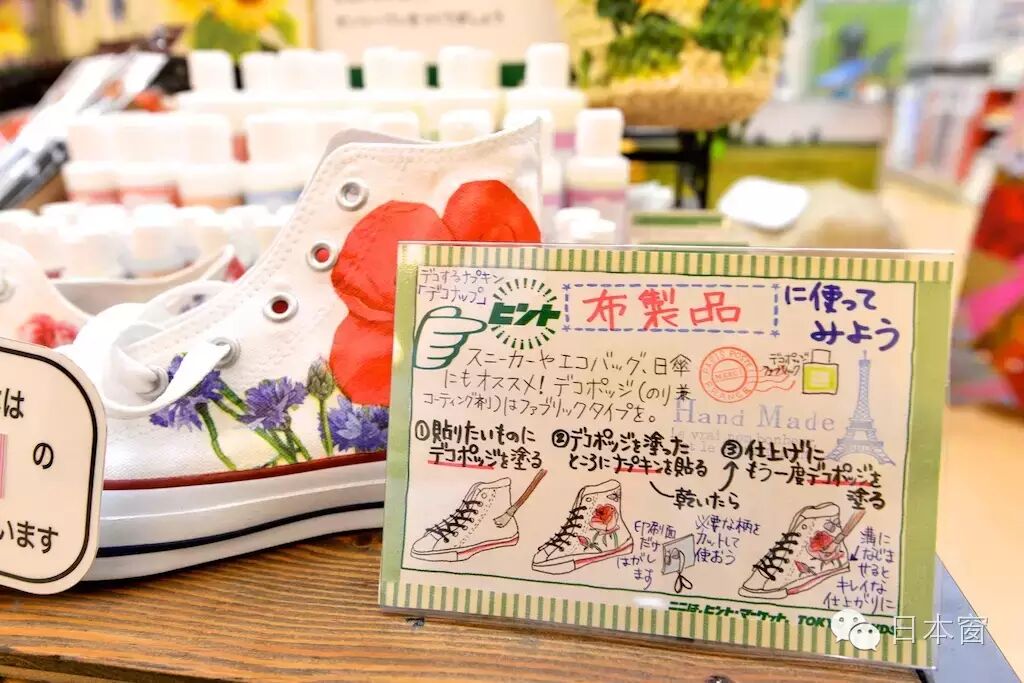 デコするナプキン
「デコナップ」
ヒント
布製品
に使って
みよう
スニーカーやエコバッグ、日傘
にもオススメ！デコポッジ(のり兼
コーティング剤)はファブリックタイプを。
デコポッジ
ファブリック
PARIS POSTE
Hand Made
①貼りたいものに
デコポッジを塗る
②デコポッジを塗った
ところにナプキンを貼る
乾いたら
③仕上げに
もう一度デコポッジを
塗る
印刷面
だけ
はがし
ます
必要な柄を
カットして
使おう
溝に
なじま
せると
キレイな
仕上がりに
ここは、ヒント・マーケット。 TOKY
は
の
います
日本窗